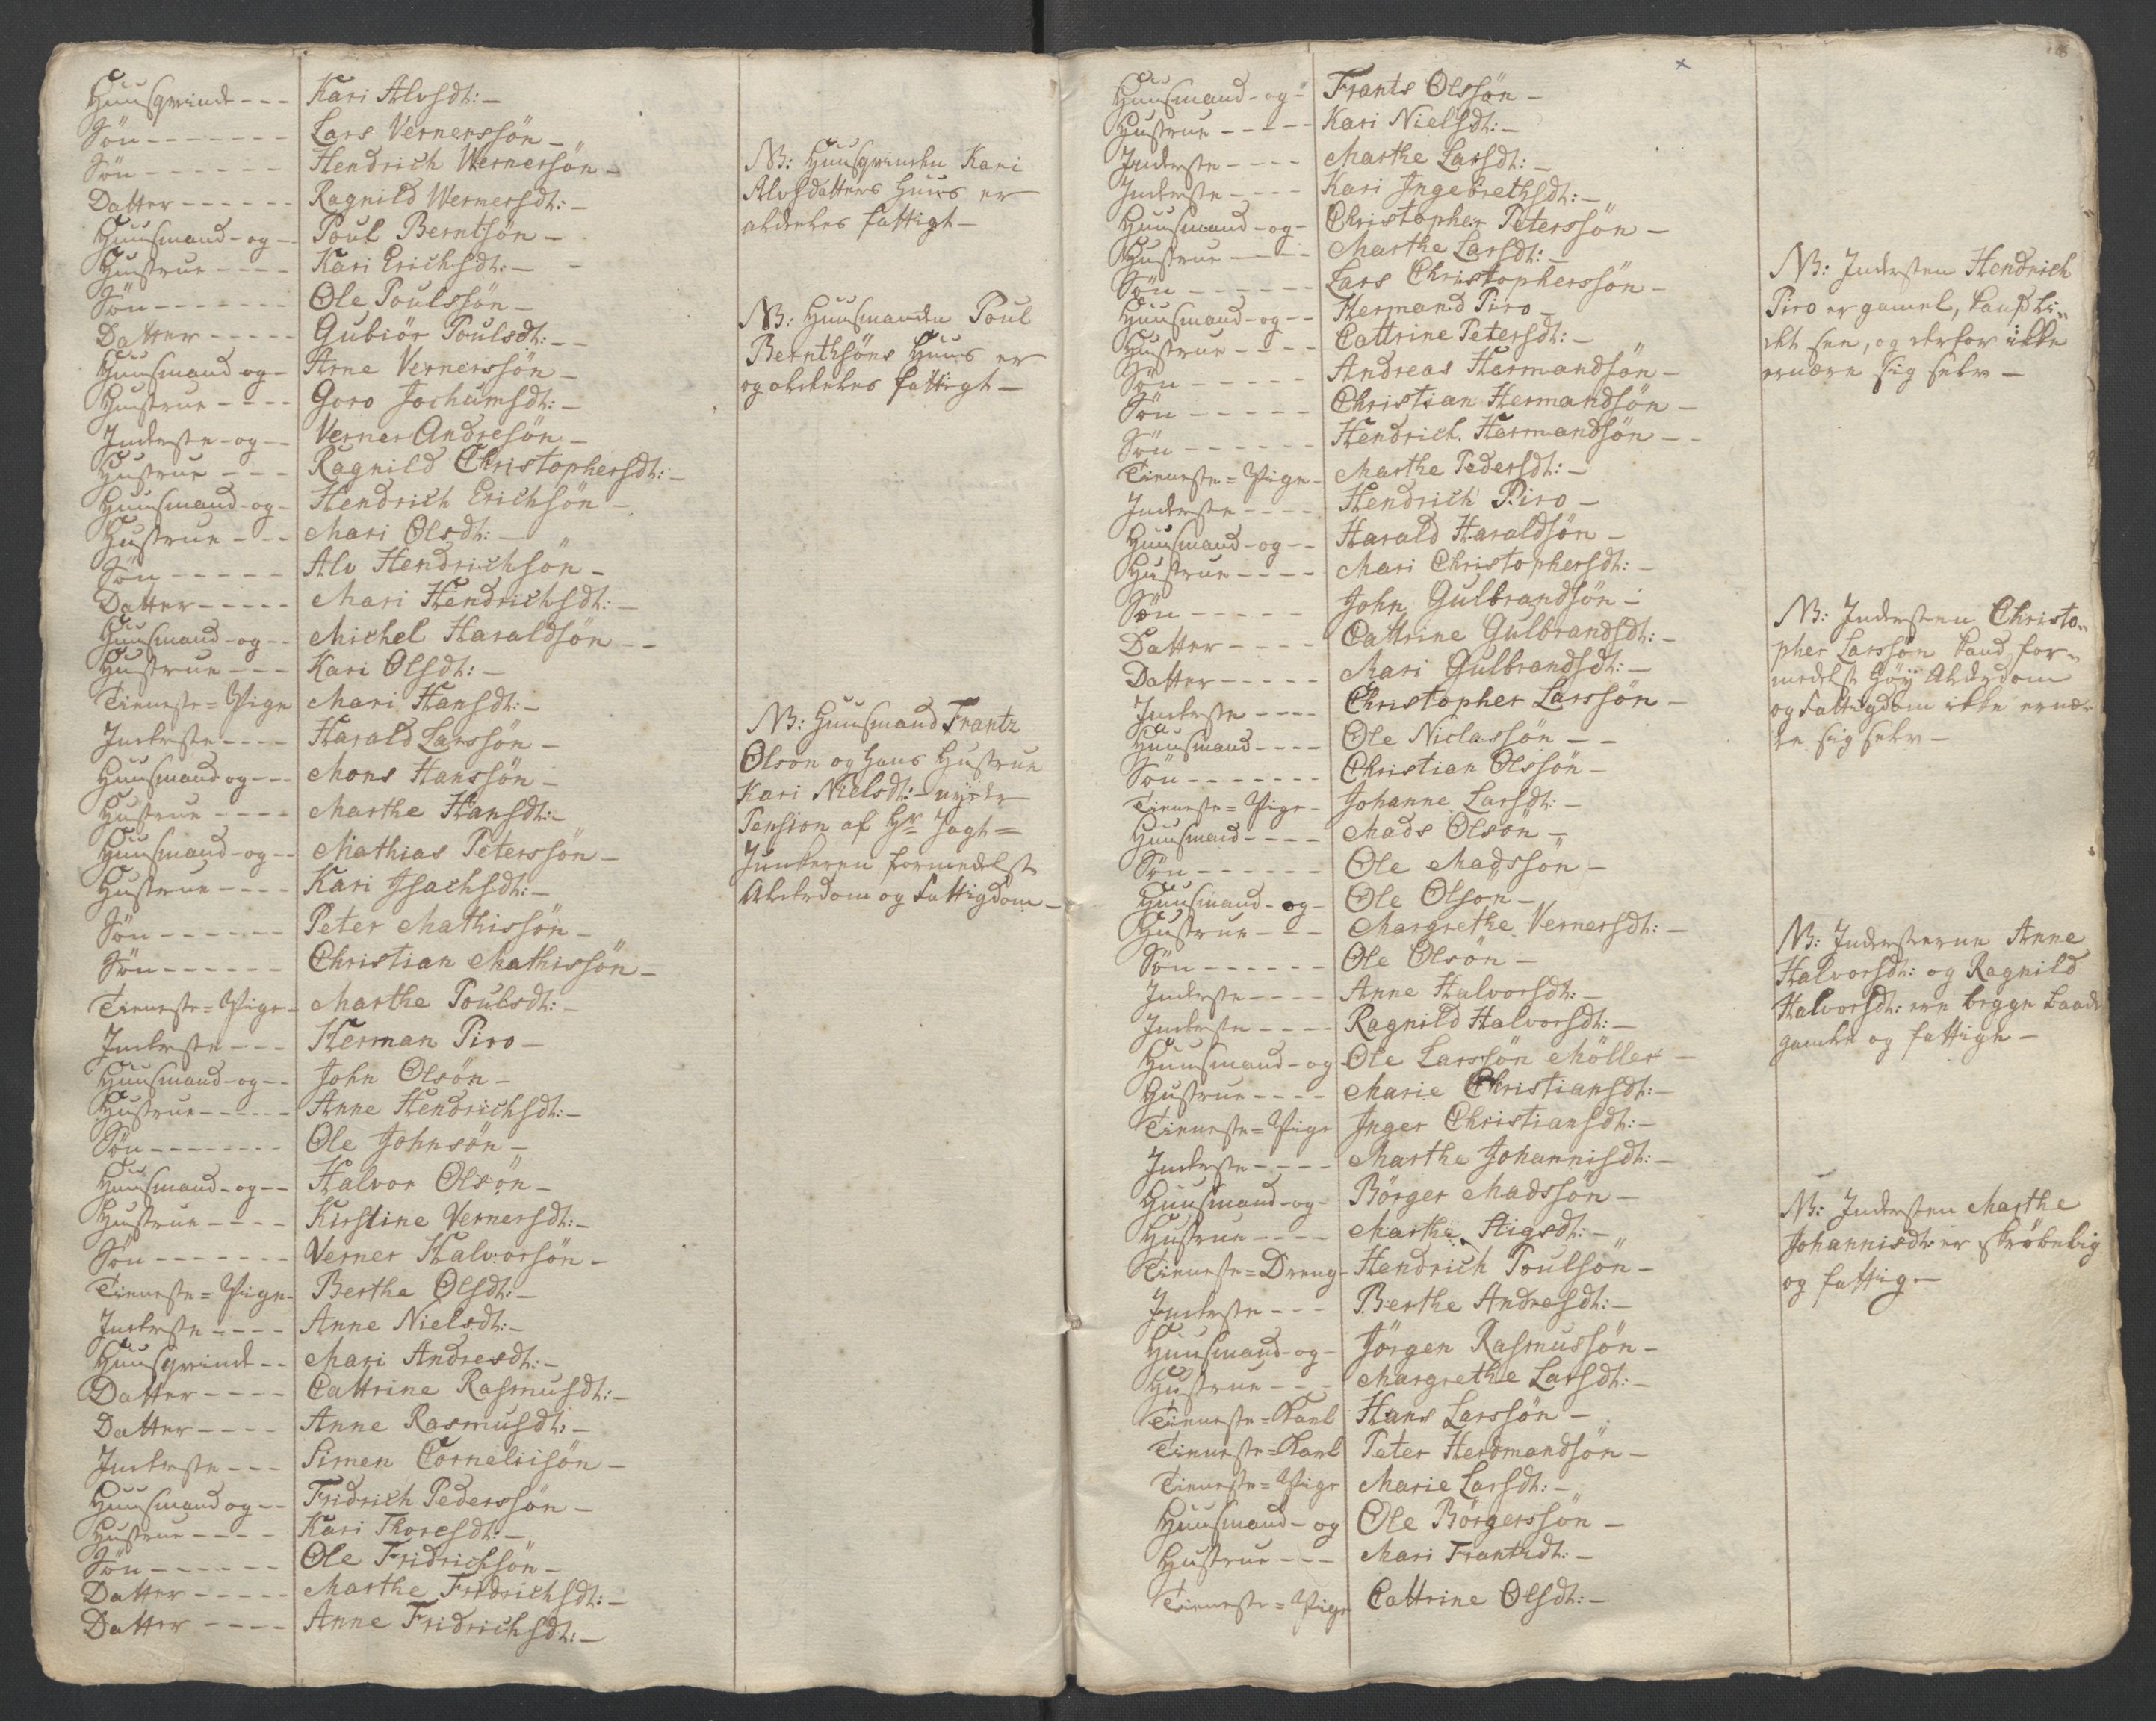 Huusqvinde --- Kari Alvsdt: -
Søn ------- Lars Vernerssön -
Søn ------ Hendrich Wernersön -
Datter ------ Ragnild Wernersdt: -
Huusmand - og -- Poul Berntsön -
Hustrue ---- Kari Erichsdt: -
Søn ------- Ole Poulssön -
Datter ----- Gubiör Poulsdt: --
Huusmand og - Arne Vernerssön -
Hustrue ---- Goro Jochumsdt: -
Inderste - og -- Verner Andresön -
Hustrue --- Ragnild Christophersdt: -
Huusmand - og - Hendrich Erichsön -
Hustrue --- Mari Olsdt: -
Søn ----- Alv Hendrichsön -
Datter ----- Mari Hendrichsdt: -
Huusmand - og -- Michel Haraldsön --
Hustrue --- Kari Olsdt: -
Tieneste = Pige Mari Hansdt: -
Inderste ---- Harald Larssön -
Huusmand og --- Mons Hanssön -
Hustrue ---- Marthe Hansdt: -
Huusmand - og -- Mathias Peterssön -
Hustrue ---- Kari Isachsdt: -
Søn ------ Peter Mathissön -
Søn ------ Christian Mathissön -
Tieneste = Pige - Marthe Poulsdt: -
Inderste --- Herman Piro -
Huusmand - og -- John Olsön -
Hustrue ------ Anne Hendrichsdt: -
Søn ------- Ole Johnsön -
Huusmand - og -- Halvor Olsön -
Hustrue ---- Kirstine Vernersdt: -
Søn ------- Verner Halvorsön -
Tieneste = Pige - Berthe Olsdt: -
Inderste ---- Anne Nielsdt: -
Huusqvinde -- Mari Andresdt: -
Datter ---- Cattrine Rasmusdt: -
Datter ---- Anne Rasmusdt: -
Inderste --- Simen Cornelisön -
Huusmand og -- Fridrich Pederssön -
Hustrue ---- Kari Thoresdt: -
Søn ------ Ole Fridrichsön -
Datter ----- Marthe Fridrichsdt: -
Datter ---- Anne Fridrichsdt: -
NB: Huusqvinden Kari
Alvsdatters Huus er
aldeeles fattigt -
NB: Huusmanden Poul
Bernthsöns Huus er
og aldeeles fattigt -
NB: Huusmand Frantz
Olsön og hans Hustrue
Kari Nielsdt: nyder
Pension af Hr Jagt =
Junkeren formedelst
Alderdom og Fattigdom -
Huusmand - og - Frants Olssön -
Hustrue ----- Kari Nielsdt: -
Inderste ---- Marthe Larsdt: -
Inderste ---- Kari Ingebrethsdt: -
Huusmand - og - Christopher Peterssön -
Hustrue ---- Marthe Larsdt: -
Søn ------ Lars Christopherssön -
Huusmand - og -- Hermand Piro -
Hustrue ---- Cattrine Petersdt: -
Søn ----- Andreas Harmandsön -
Søn ----- Christian Hermandsön -
Søn ----- Hendrich Harmandsön --
Tieneste = Pige - Marthe Pedersdt: -
Inderste ---- Hendrich Piro -
Huusmand - og -- Harald Haraldsön -
Hustrue ---- Mari Christophersdt: -
Søn ----- John Gulbrandsön -
Datter ---- Cattrine Gulbrandsdt: -
Datter ----- Mari Gulbrandsdt: -
Inderste ---- Christopher Larssön -
Huusmand ---- Ole Niclassön --
Søn ------- Christian Olssön -
Tieneste = Pige - Johanne Larsdt: -
Huusmand ---- Mads Olsön -
Søn ------ Ole Madssön -
Huusmand - og - Ole Olsön -
Hustrue --- Margrethe Vernersdt: -
Søn ------ Ole Olsön -
Inderste ---- Anne Halvorsdt: -
Inderste ---- Ragnild Halvorsdt: -
Huusmand - og Ole Larssön Möller -
Hustrue ---- Marie Christiansdt: -
Tieneste = Pige Inger Christiansdt: -
Inderste ---- Marthe Johannisdt: -
Huusmand - og - Börger Madssön -
Hustrue ---- Marthe Stigsdt: -
Tieneste = Dreng - Hendrich Poulsön -
Inderste --- Berthe Andresdt: -
Huusmand - og - Jörgen Rasmussön -
Hustrue --- Margrethe Larsdt: -
Tieneste = Karl Hans Larssön -
Tieneste = Karl Peter Herdmandsön -
Tieneste = Pige Marie Larsdt: -
Huusmand - og Ole Börgerssön -
Hustrue --- Mari Frantzdt: -
Tieneste = Pige Cattrine Olsdt: -
NB: Indersten Hendrich
Piro er gamel, kand li„
det see, og derfor ikke
ernære sig selv -
NB: Indersten Christo„
pher Larssön kand for„
medelst høy Alderdom
og Fattigdom ikke ernæ„
re sig selv -
NB: Indersterne Anne
Halvorsdt: og Ragnild
Halvorsdt: ere begge baade
gamle og fattige -
NB: Indersten Marthe
Johannisdt: er skröbelig
og fattig -